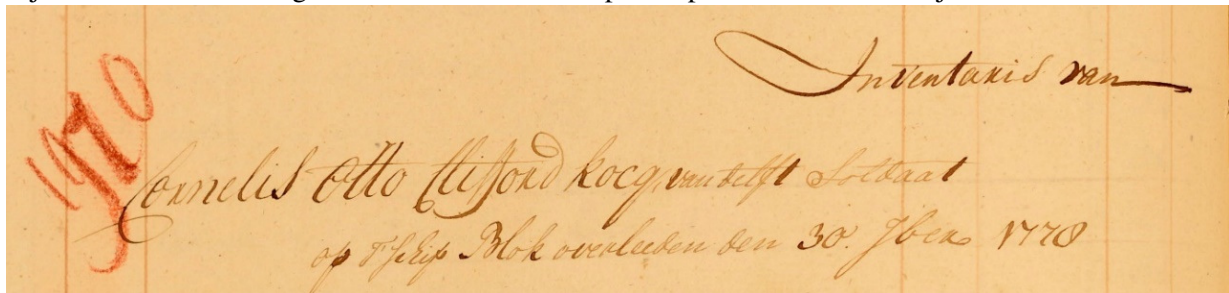 Inventaris van
Cornelis Otto Clifford Kocq van delft Soldaat
op t Schip Blok overleeden den 30. 7ber 1778